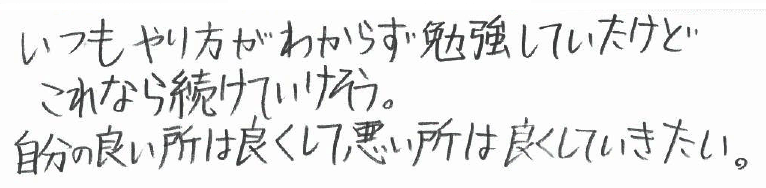 いつもやり方がわからず勉強していたけど
これなら続けていけそう。
自分の良い所は良くして、悪い所は良くしていきたい。